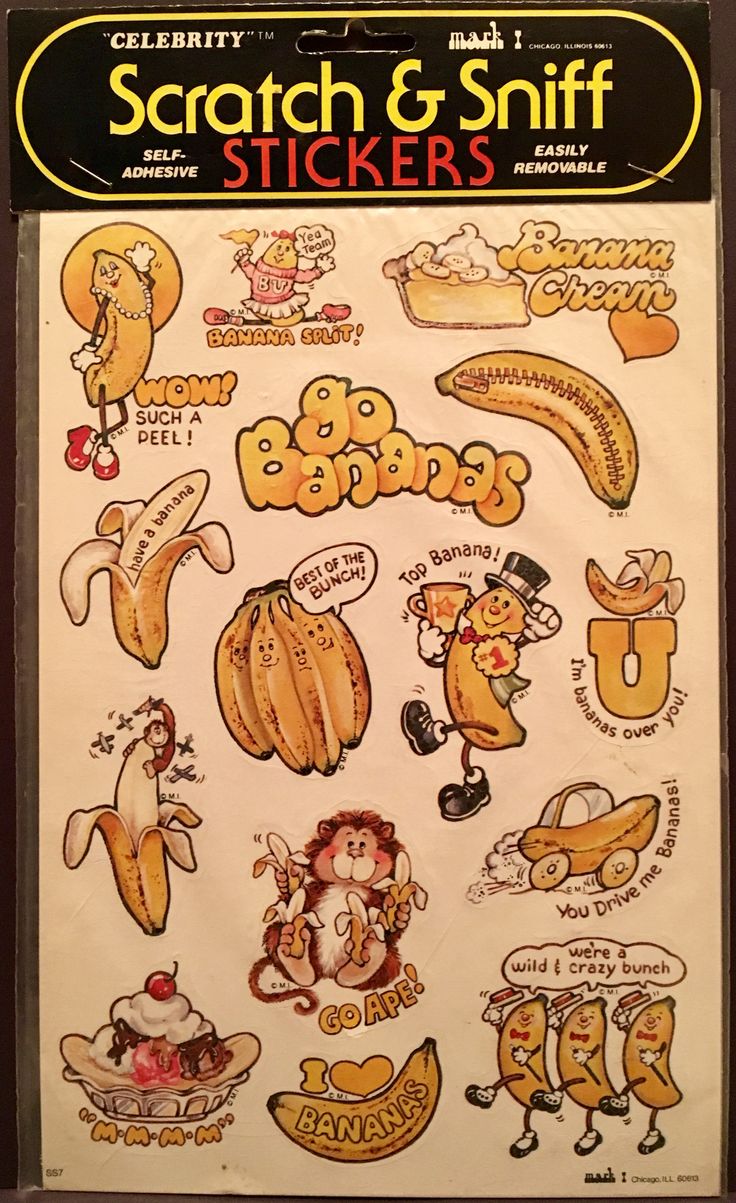 "CELEBRITY"™
mark I CHICAGO, ILLINOIS 60613
Scratch & Sniff
SELF-
ADHESIVE
STICKERS
EASILY
REMOVABLE
WOW!
SUCH A
PEEL!
© M.I.
Yea
Team
BU
© M.I.
BANANA SPLIT!
Banana
Cream
© M.I.
go
Bananas
© M.I.
© M.I.
have a banana
© M.I.
BEST OF THE
BUNCH!
© M.I.
Top Banana!
#1
© M.I.
© M.I.
U
I'm bananas over you!
© M.I.
GO APE!
© M.I.
© M.I.
You Drive me Bananas!
we're a
wild & crazy bunch
© M.I.
"M·M·M·M"
© M.I.
I
© M.I.
BANANAS
SS7
mark I Chicago, ILL. 60613